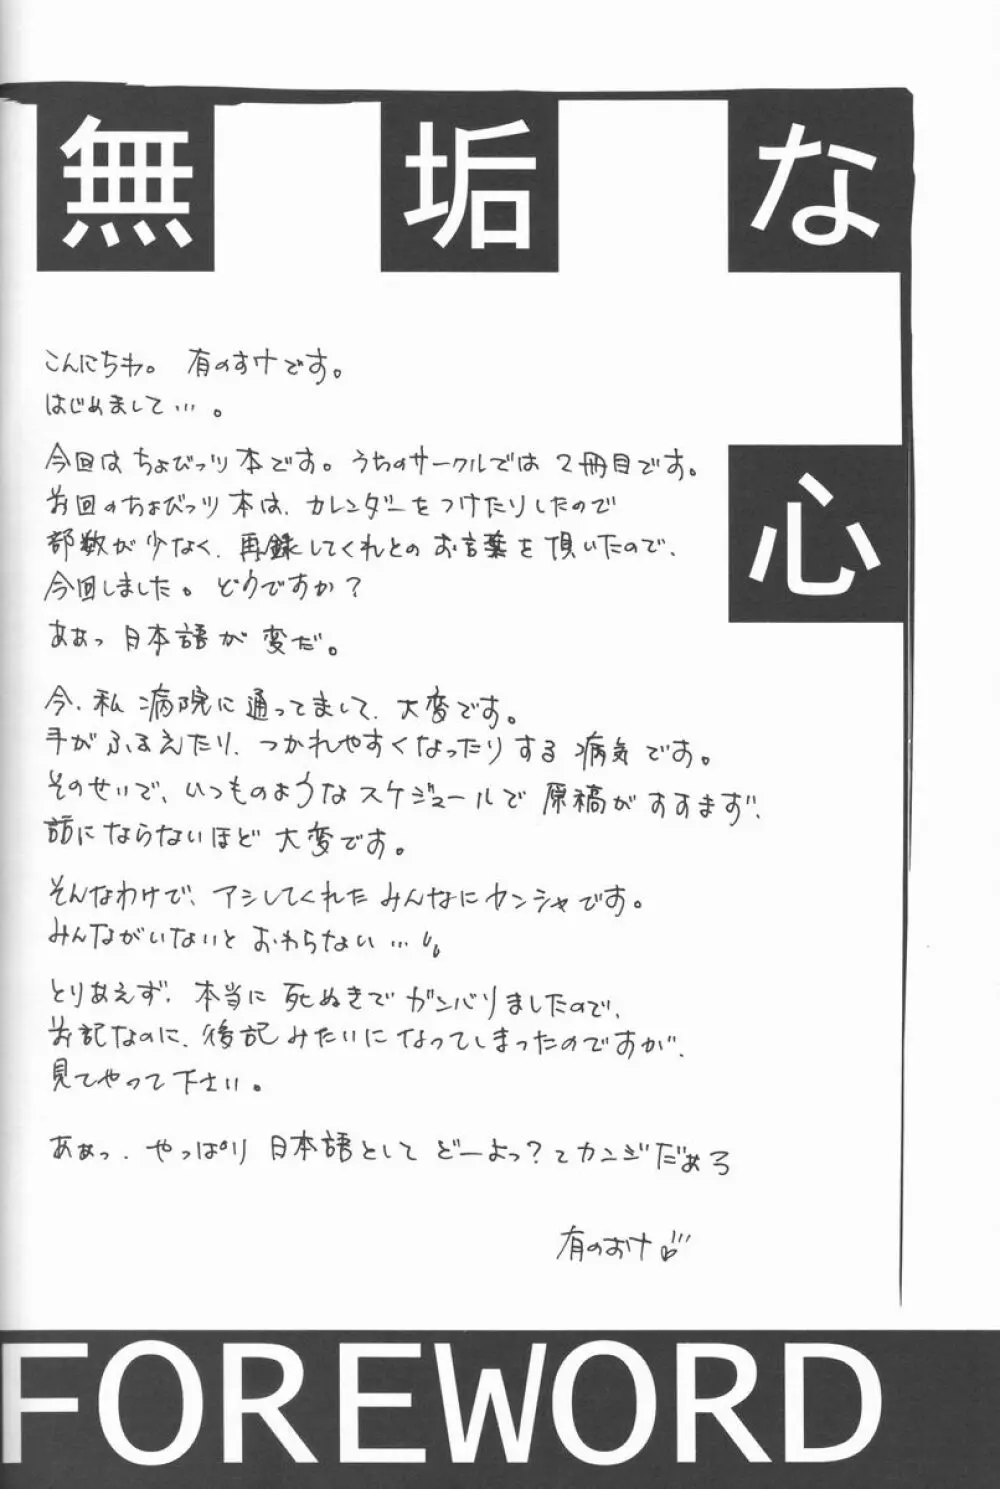 無垢な心
こんにちわ。 有のすけです。
はじめまして…。
今回はちょびっツ本です。うちのサークルでは2冊目です。
前回のちょびっツ本は、カレンダーをつけたりしたので
部数が少なく、再録してくれとのお言葉を頂いたので、
今回しました。どうですか?
ああっ日本語が変だ。
今、私病院に通ってまして、大変です。
手がふるえたり、つかれやすくなったりする病気です。
そのせいで、いつものようなスケジュールで原稿がすすまず、
話にならないほど大変です。
そんなわけで、アシしてくれたみんなにカンシャです。
みんながいないとおわらない…
とりあえず、本当に死ぬきでガンバリましたので、
前記なのに、後記みたいになってしまったのですが、
見てやって下さい。
ああっ、やっぱり日本語としてどーよっ?てカンジだぁろ
有のすけ
FOREWORD